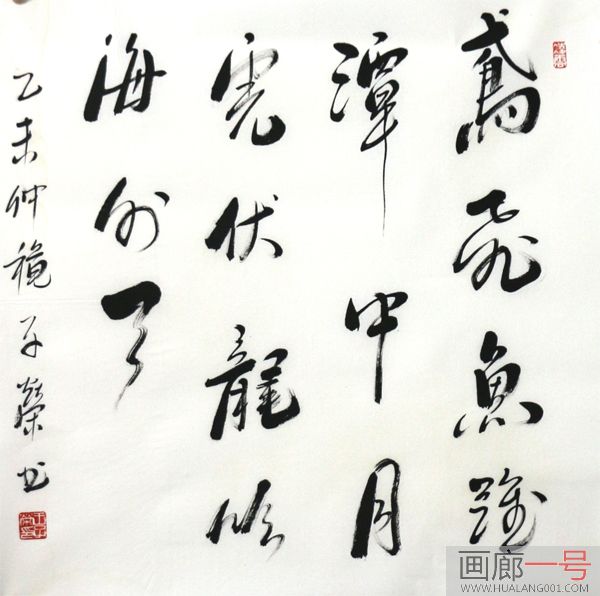 鳶飛魚躍
潭中月
虎伏龍吟
海外天
乙未仲穐子榮书
画廊一号
WWW.HUALANG001.COM